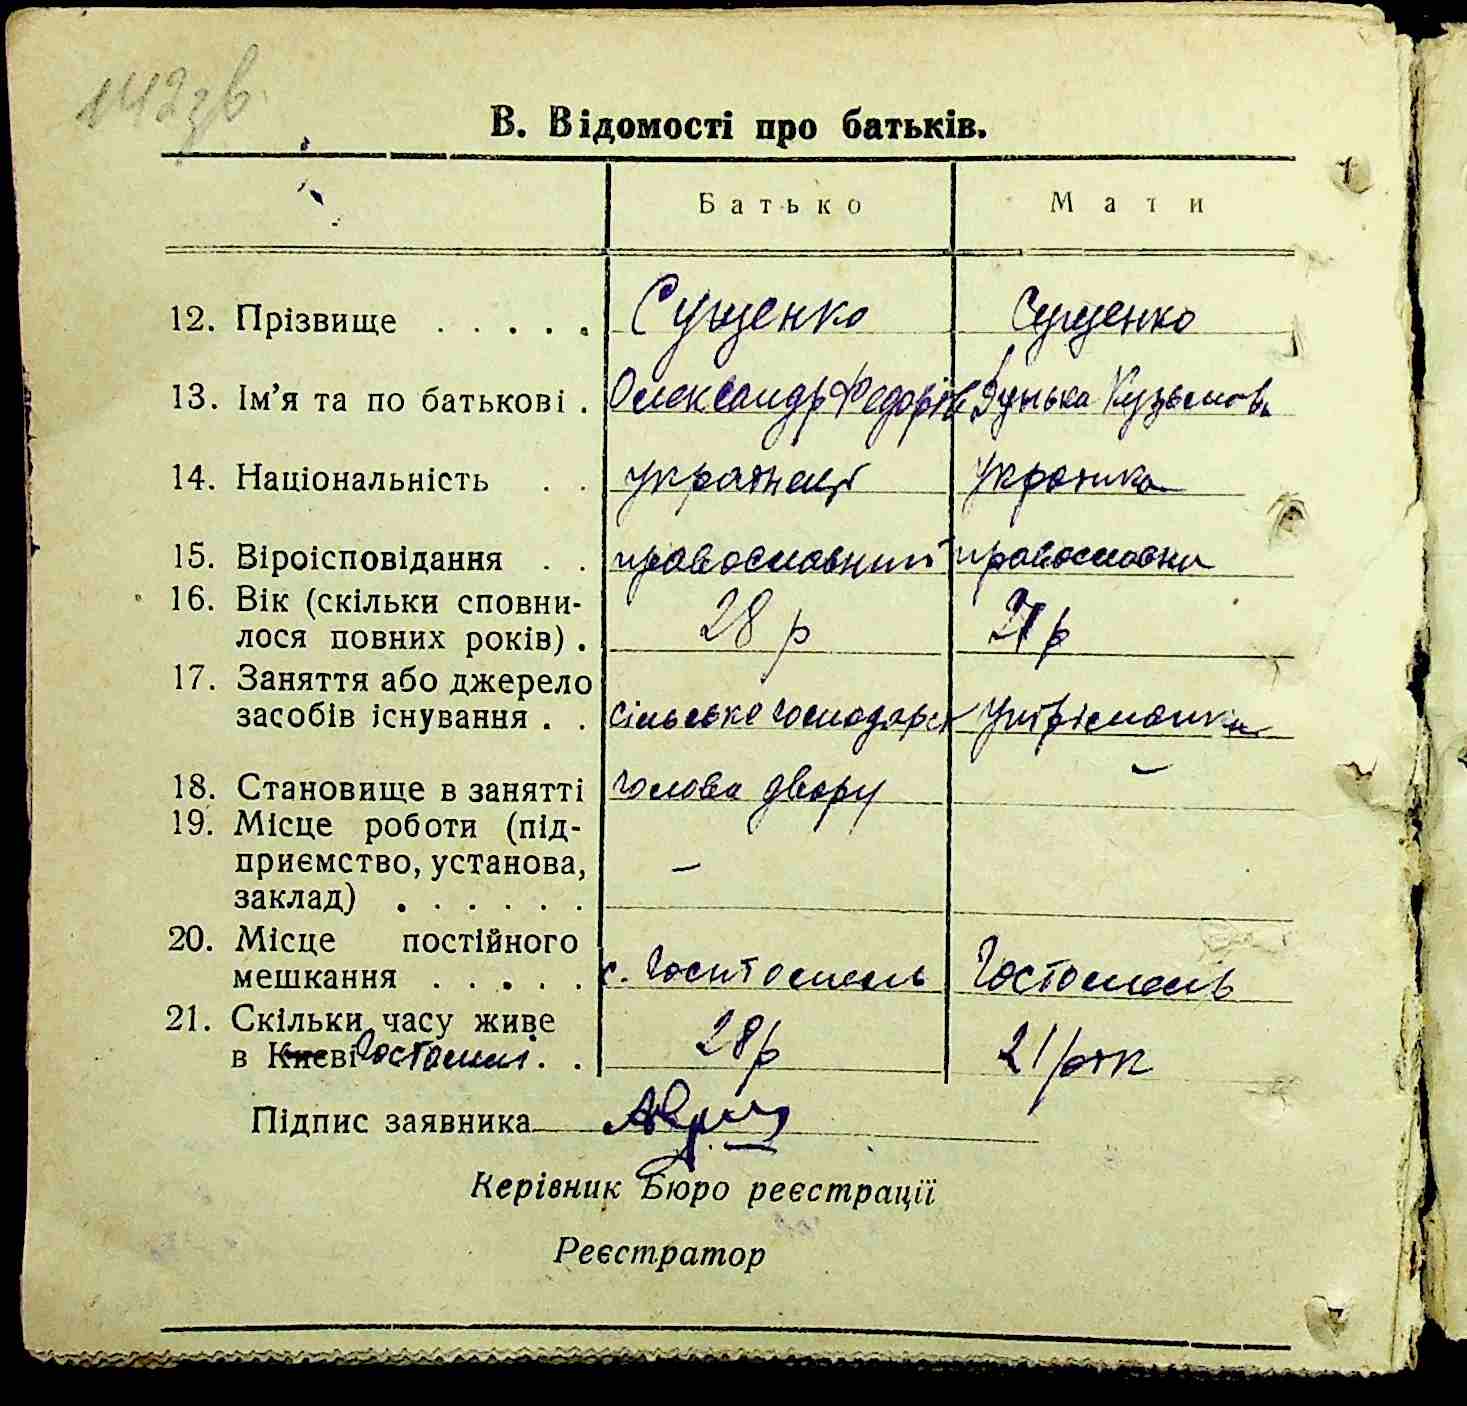 142зв
В. Відомості про батьків.
Батько Мати
12. Прізвище . . . . . Сущенко Сущенко
13. Ім’я та по батькові . Олександр Федорів Дунька Кузьмов.
14. Національність . . українець українка
15. Віроісповідання . . православний православна
16. Вік (скільки сповни-
лося повних років) . 28 р р
17. Заняття або джерело
засобів існування . . сільське господарст утріманка
18. Становище в занятті голова двору –
19. Місце роботи (під-
приємство, установа, –
заклад) . . . . . .
20. Місце постійного
мешкання . . . . . с. Гостомель Гостомель
21. Скільки часу живе
в Києві Гостомлі . . 28 р 21 рік
Підпис заявника
Керівник Бюро реєстрації
Реєстратор